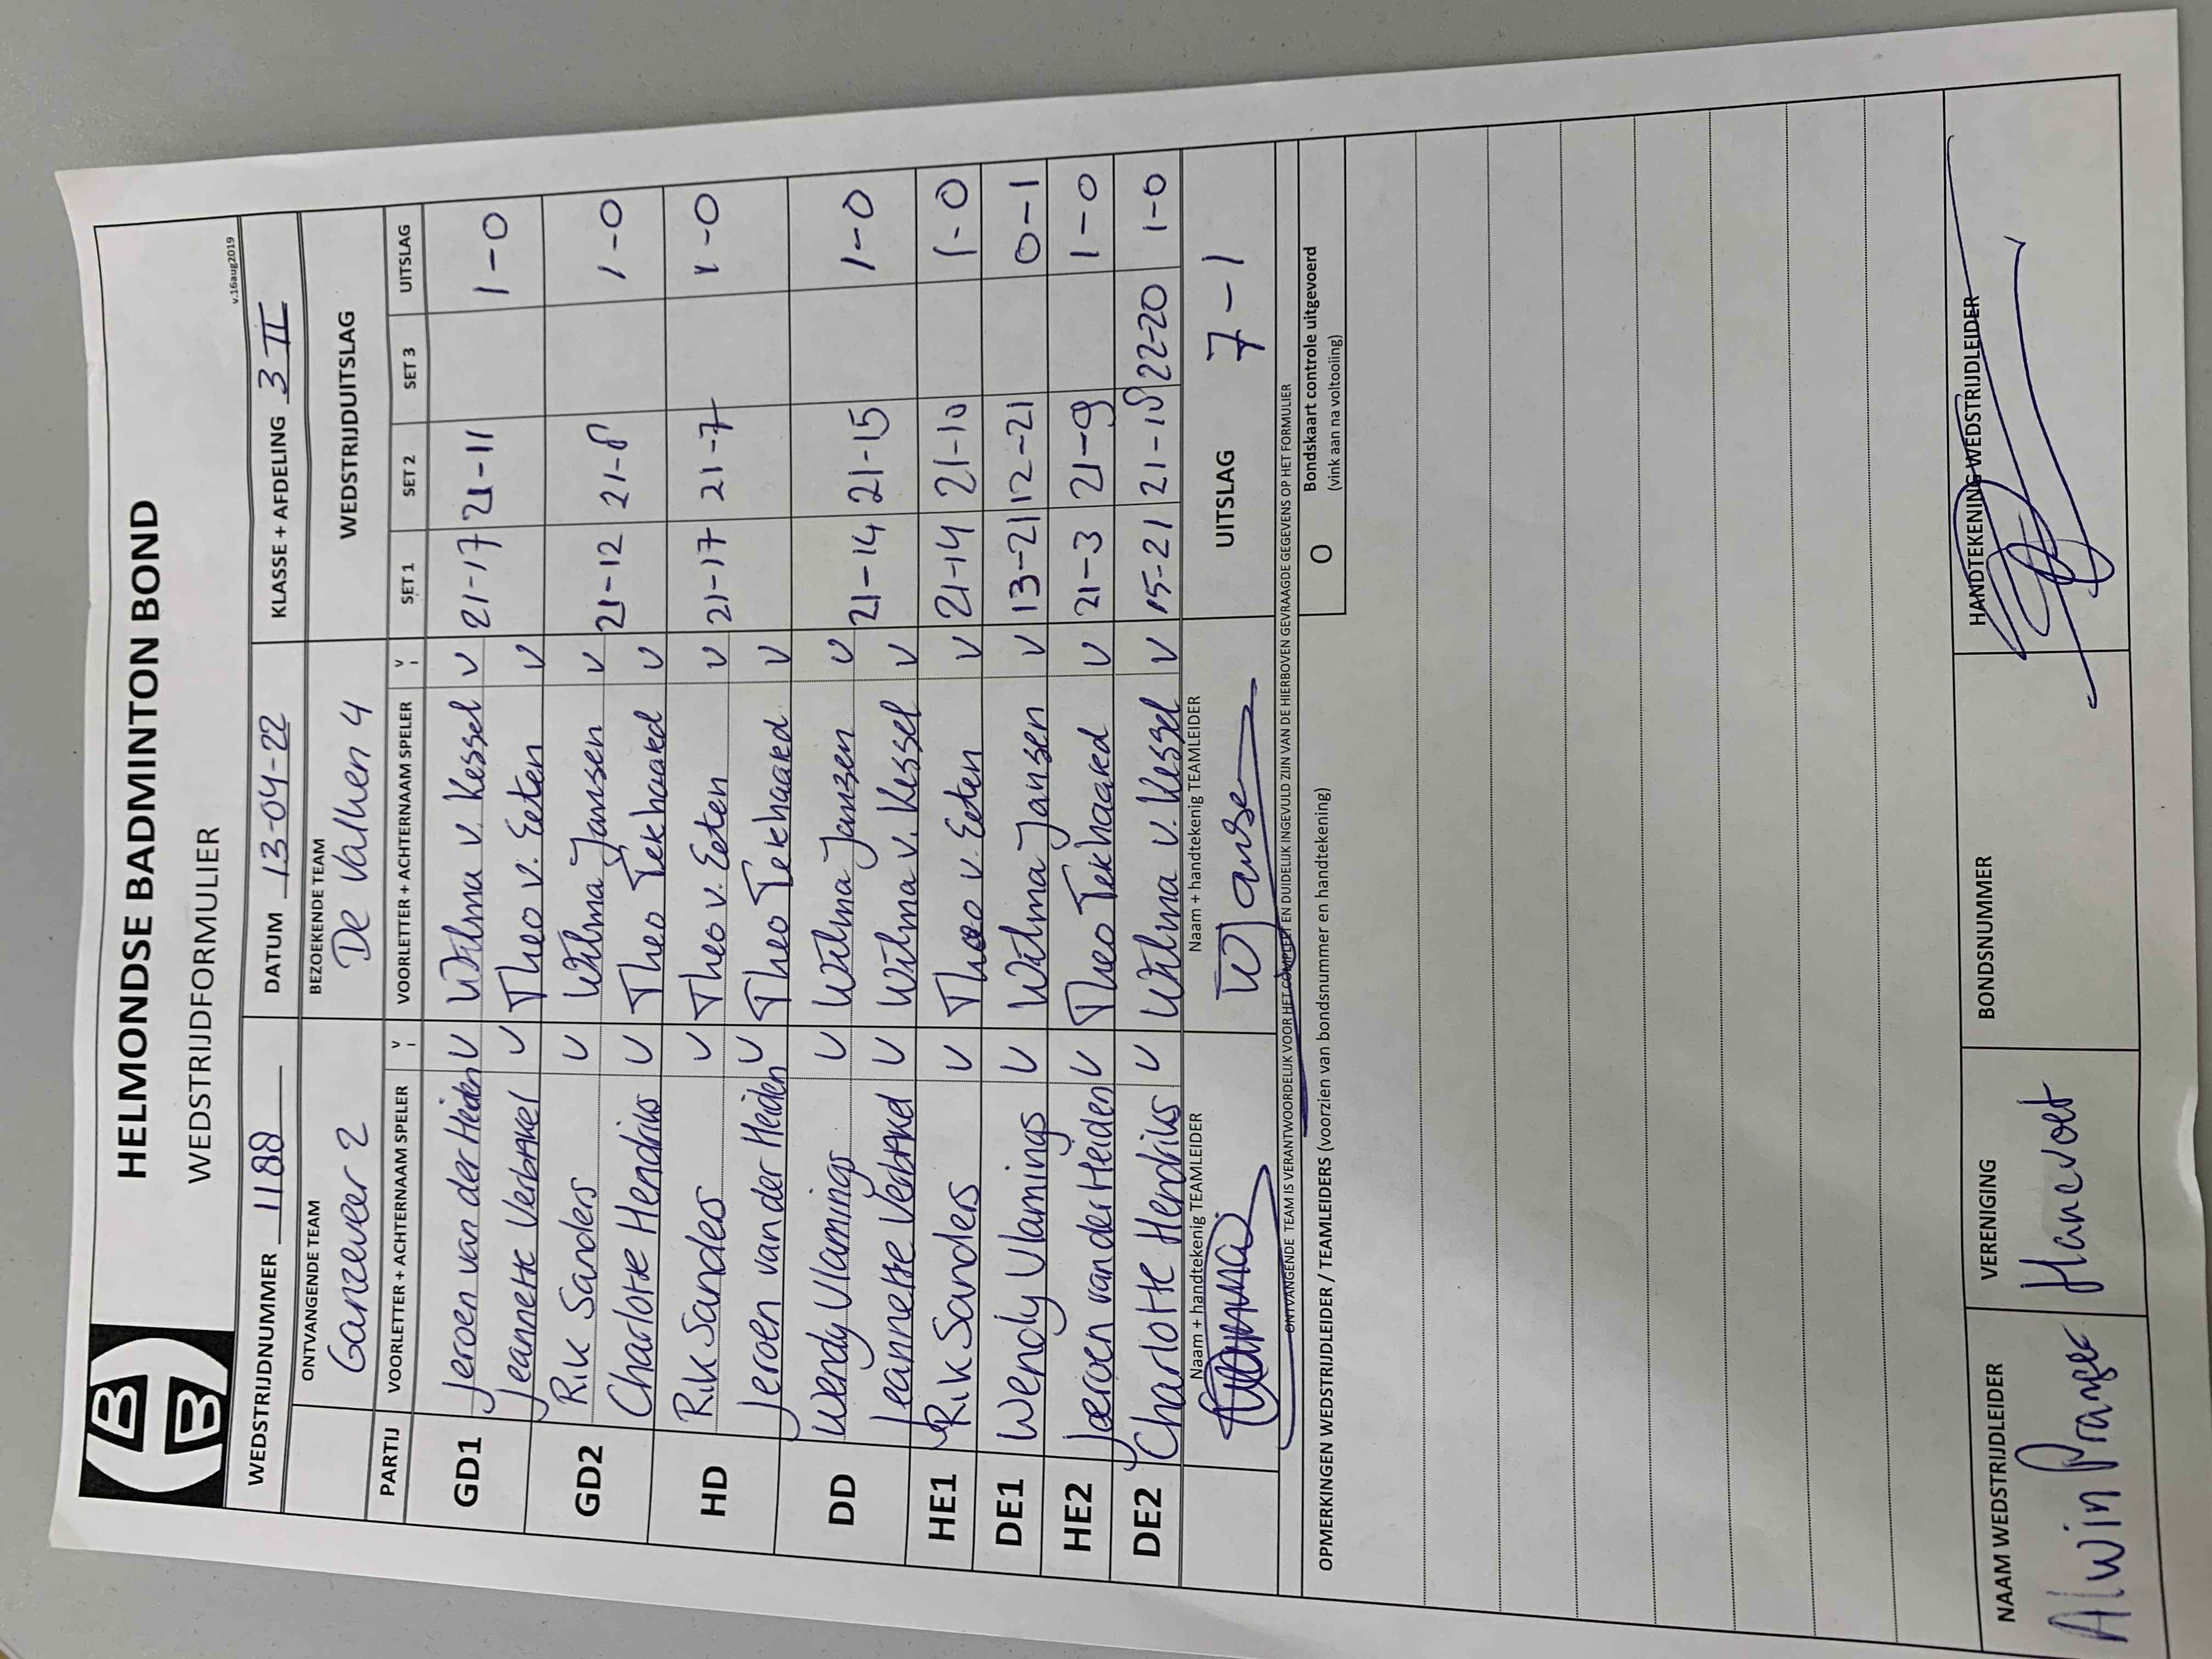 HELMONDSE BADMINTON BOND
WEDSTRIJDFORMULIER
v.16aug2019
WEDSTRIJDNUMMER 1188 DATUM 13-04-22 KLASSE + AFDELING 3 II
ONTVANGENDE TEAM BEZOEKENDE TEAM WEDSTRIJDUITSLAG
Ganzeveer 2 De Valken 4
PARTIJ VOORLETTER + ACHTERNAAM SPELER V VOORLETTER + ACHTERNAAM SPELER V SET 1 SET 2 SET 3 UITSLAG
GD1 Jeroen van der Heiden V Wilma v. Kessel V 21-17 21-11 1-0
Jeannette Verbakel V Theo v. Eeten V
GD2 Rik Sanders V Wilma Jansen V 21-12 21-8 1-0
Charlotte Hendriks V Theo Tekhaard V
HD Rik Sanders V Theo v. Eeten V 21-17 21-7 1-0
Jeroen van der Heiden V Theo Tekhaard V
DD Wendy Vlamings V Wilma Janzen V 21-14 21-15 1-0
Jeannette Verbakel V Wilma v. Kessel V
HE1 Rik Sanders V Theo v. Eeten V 21-14 21-10 1-0
DE1 Wendy Vlamings V Wilma Jansen V 13-21 12-21 0-1
HE2 Jeroen van der Heiden V Theo Tekhaard V 21-3 21-9 1-0
DE2 Charlotte Hendriks V Wilma v. Kessel V 15-21 21-18 22-20 1-0
Naam + handtekenig TEAMLEIDER Naam + handtekenig TEAMLEIDER UITSLAG 7-1
WJanse
ONTVANGENDE TEAM IS VERANTWOORDELIJK VOOR HET COMPLEET EN DUIDELIJK INGEVULD ZIJN VAN DE HIERBOVEN GEVRAAGDE GEGEVENS OP HET FORMULIER
OPMERKINGEN WEDSTRIJDLEIDER / TEAMLEIDERS (voorzien van bondsnummer en handtekening)
O Bondskaart controle uitgevoerd
(vink aan na voltooiing)
NAAM WEDSTRIJDLEIDER VERENIGING BONDSNUMMER HANDTEKENING WEDSTRIJDLEIDER
Alwin Pranger Hanevoet